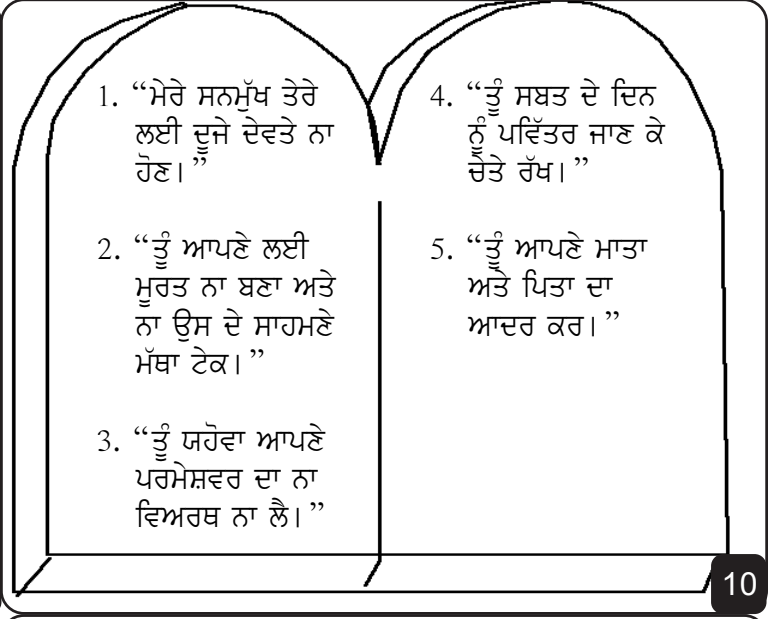 1. “ਮੇਰੇ ਸਨਮੁੱਖ ਤੇਰੇ
ਲਈ ਦੂਜੇ ਦੇਵਤੇ ਨਾ
ਹੋਣ।”
2. “ਤੂੰ ਆਪਣੇ ਲਈ
ਮੂਰਤ ਨਾ ਬਣਾ ਅਤੇ
ਨਾ ਉਸ ਦੇ ਸਾਹਮਣੇ
ਮੱਥਾ ਟੇਕ।”
3. “ਤੂੰ ਯਹੋਵਾ ਆਪਣੇ
ਪਰਮੇਸ਼ਵਰ ਦਾ ਨਾ
ਵਿਅਰਥ ਨਾ ਲੈ।”
4. “ਤੂੰ ਸਬਤ ਦੇ ਦਿਨ
ਨੂੰ ਪਵਿੱਤਰ ਜਾਣ ਕੇ
ਚੇਤੇ ਰੱਖ।”
5. “ਤੂੰ ਆਪਣੇ ਮਾਤਾ
ਅਤੇ ਪਿਤਾ ਦਾ
ਆਦਰ ਕਰ।”
10